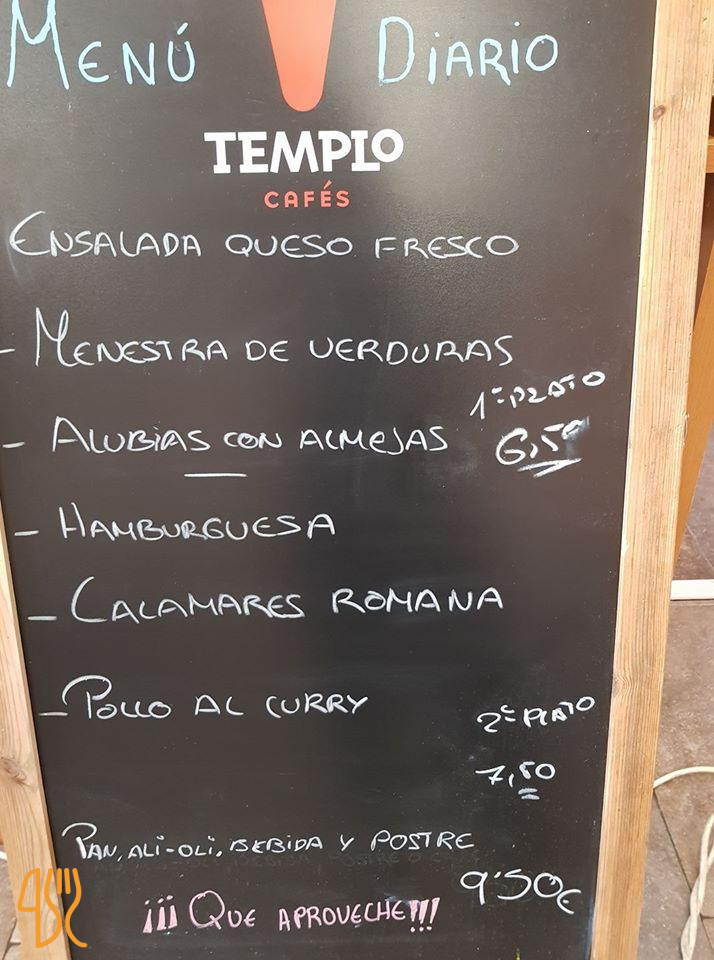 MENÚ DIARIO
TEMPLO
CAFÉS
ENSALADA QUESO FRESCO
- MENESTRA DE VERDURAS
1º PLATO
- ALUBIAS CON ALMEJAS 6,50
- HAMBURGUESA
- CALAMARES ROMANA
- POLLO AL CURRY
2º PLATO
7,50
PAN, ALI-OLI, BEBIDA Y POSTRE
9'50€
¡¡¡ QUE APROVECHE!!!